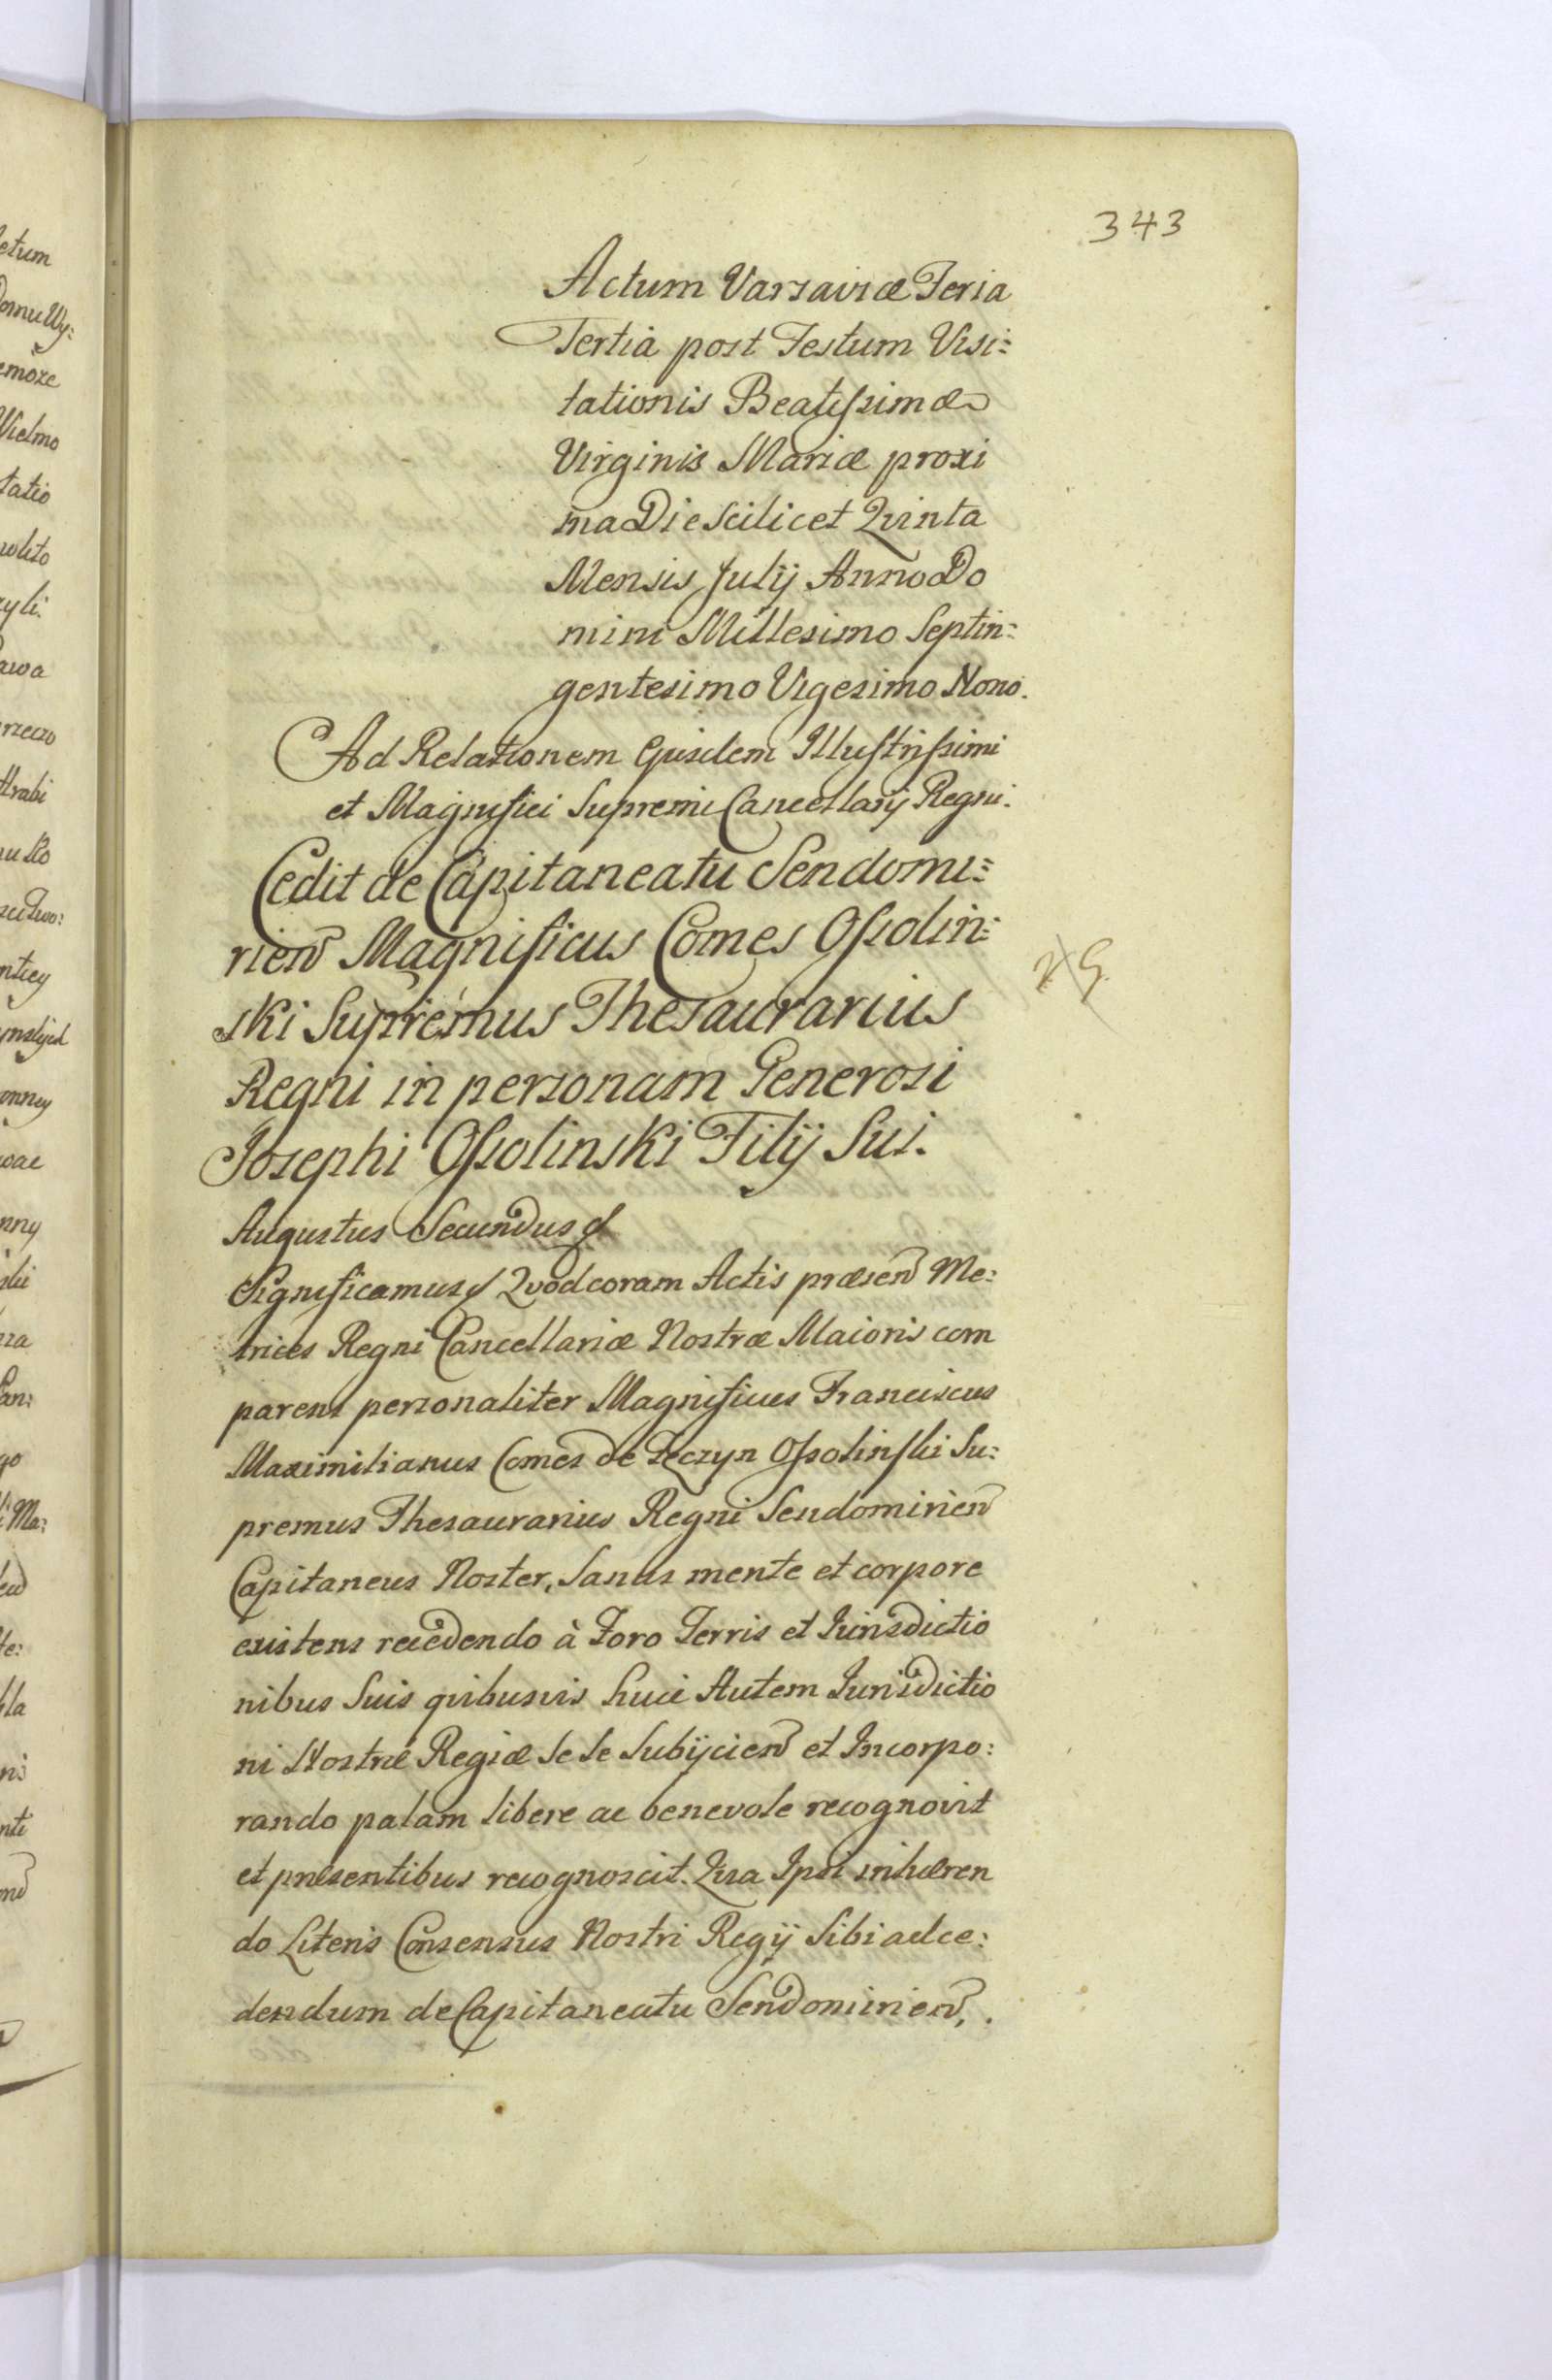 343
Actum Varsaviæ Feria
Tertia post Festum Visi=
tationis Beatissimæ
Virginis Mariæ proxi
ma Die scilicet Qvinta
Mensis Julij Anno Do
mini Millesimo Septin=
gentesimo Vigesimo Nono.
Ad Relationem Ejusdem Illustrissimi
et Magnifici Supremi Cancellarij Regni.
Cedit de Capitaneatu Sendomi=
rien Magnificus Comes Ossolin=
ski Supremus Thesaurarius
Regni in personam Generosi
Josephi Ossolinski Filij Sui.
Augustus Secundus
Significamus Qvod coram Actis præsen Me:
trices Regni Cancellariæ Nostræ Maioris com
parens personaliter Magnificus Franciscus
Maximilianus Comes de Teczyn Ossolinski Su:
premus Thesaurarius Regni Sendomirien
Capitaneus Noster, Sanus mente et corpore
existens recedendo à Foro Terris et Iurisdictio
nibus Suis qvibusvis huic Autem Iurisdictio
ni Nostræ Regiæ Se Se Subijcien et Incorpo:
rando palam libere ac benevole recognovit
et præsentibus recognoscit. Qvia Ipse inhæren
do Literis Consensus Nostri Regij Sibi ad ce:
dendum de Capitaneatu Sendomirien,
etum
emoze
Wielmo
tatio
yli:
awa
trabi
ntiey
onney
wae
nny
an:
go
Ma:
te:
nti